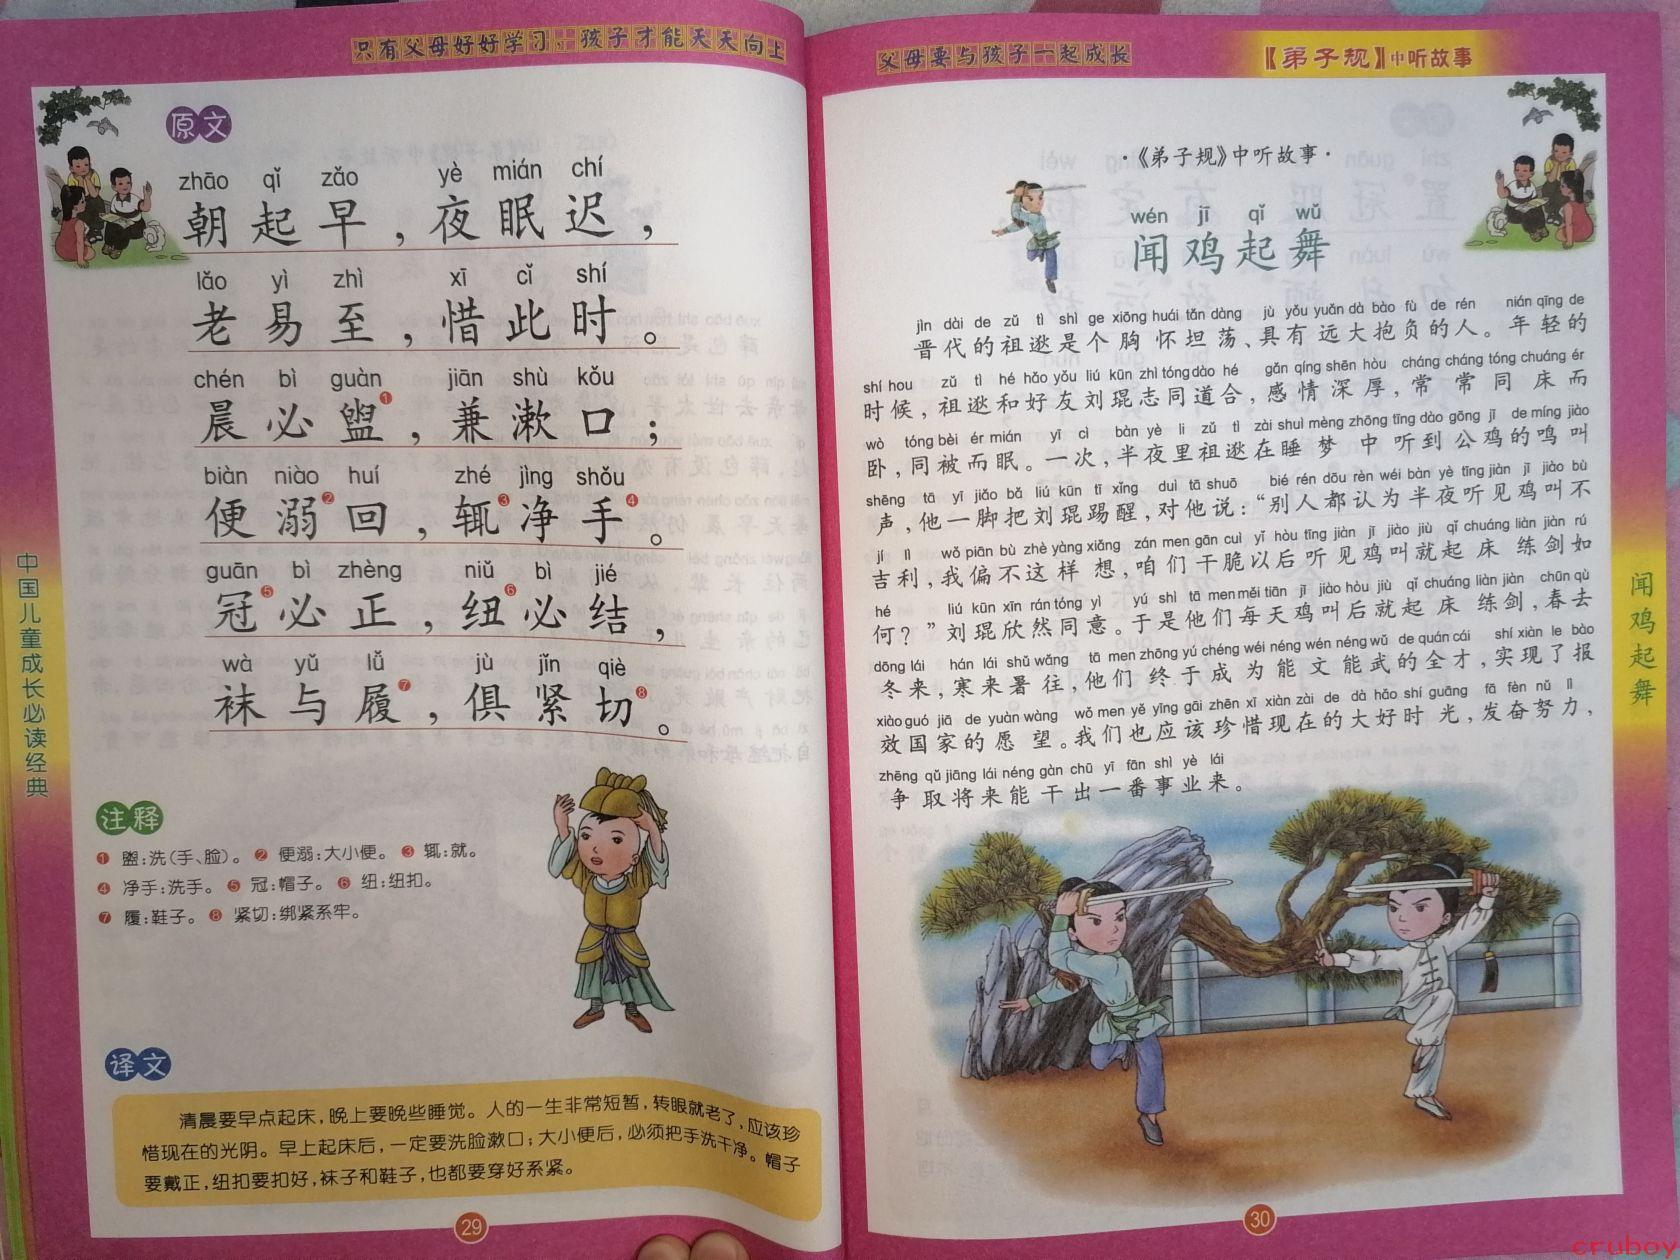 只有父母好好学习，孩子才能天天向上
原文
zhāo qǐ zǎo yè mián chí
朝起早，夜眠迟，
lǎo yì zhì xī cǐ shí
老易至，惜此时。
chén bì guàn jiān shù kǒu
晨必盥①，兼漱口；
biàn niào huí zhé jìng shǒu
便溺②回，辄③净手④。
guān bì zhèng niǔ bì jié
冠⑤必正，纽⑥必结，
wà yǔ lǚ jù jǐn qiè
袜与履⑦，俱紧切⑧。
注释
① 盥：洗（手、脸）。 ② 便溺：大小便。 ③ 辄：就。
④ 净手：洗手。 ⑤ 冠：帽子。 ⑥ 纽：纽扣。
⑦ 履：鞋子。 ⑧ 紧切：绑紧系牢。
译文
清晨要早点起床，晚上要晚些睡觉。人的一生非常短暂，转眼就老了，应该珍
惜现在的光阴。早上起床后，一定要洗脸漱口；大小便后，必须把手洗干净。帽子
要戴正，纽扣要扣好，袜子和鞋子，也都要穿好系紧。
中国儿童成长必读经典
29
父母要与孩子一起成长
《弟子规》中听故事
·《弟子规》中听故事·
wén jī qǐ wǔ
闻鸡起舞
jìn dài de zǔ tì shì ge xiōng huái tǎn dàng jù yǒu yuǎn dà bào fù de rén nián qīng de
晋代的祖逖是个胸怀坦荡、具有远大抱负的人。年轻的
shí hou zǔ tì hé hǎo yǒu liú kūn zhì tóng dào hé gǎn qíng shēn hòu cháng cháng tóng chuáng ér
时候，祖逖和好友刘琨志同道合，感情深厚，常常同床而
wò tóng bèi ér mián yī cì bàn yè li zǔ tì zài shuì mèng zhōng tīng dào gōng jī de míng jiào
卧，同被而眠。一次，半夜里祖逖在睡梦中听到公鸡的鸣叫
shēng tā yī jiǎo bǎ liú kūn tī xǐng duì tā shuō bié rén dōu rèn wéi bàn yè tīng jiàn jī jiào bù
声，他一脚把刘琨踢醒，对他说：“别人都认为半夜听见鸡叫不
jí lì wǒ piān bù zhè yàng xiǎng zán men gān cuì yǐ hòu tīng jiàn jī jiào jiù qǐ chuáng liàn jiàn rú
吉利，我偏不这样想，咱们干脆以后听见鸡叫就起床练剑如
hé liú kūn xīn rán tóng yì yú shì tā men měi tiān jī jiào hòu jiù qǐ chuáng liàn jiàn chūn qù
何？”刘琨欣然同意。于是他们每天鸡叫后就起床练剑，春去
dōng lái hán lái shǔ wǎng tā men zhōng yú chéng wéi néng wén néng wǔ de quán cái shí xiàn le bào
冬来，寒来暑往，他们终于成为能文能武的全才，实现了报
xiào guó jiā de yuàn wàng wǒ men yě yīng gāi zhēn xī xiàn zài de dà hǎo shí guāng fā fèn nǔ lì
效国家的愿望。我们也应该珍惜现在的大好时光，发奋努力，
zhēng qǔ jiāng lái néng gàn chū yī fān shì yè lái
争取将来能干出一番事业来。
闻鸡起舞
30
cruboy